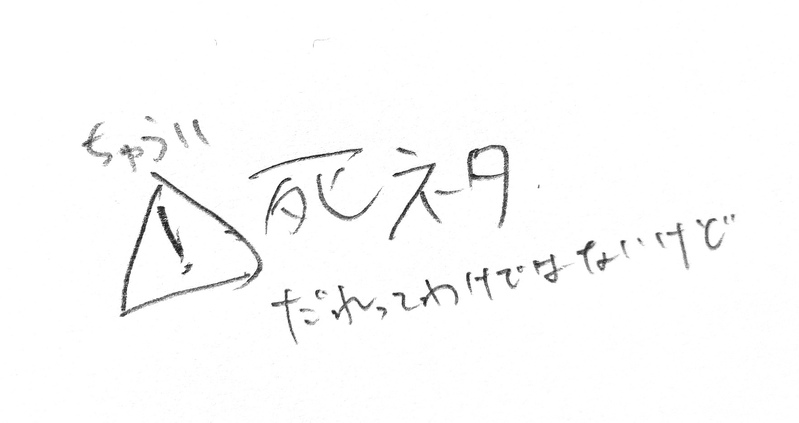 ちゅうい
⚠死ネタ
だれってわけではないけど